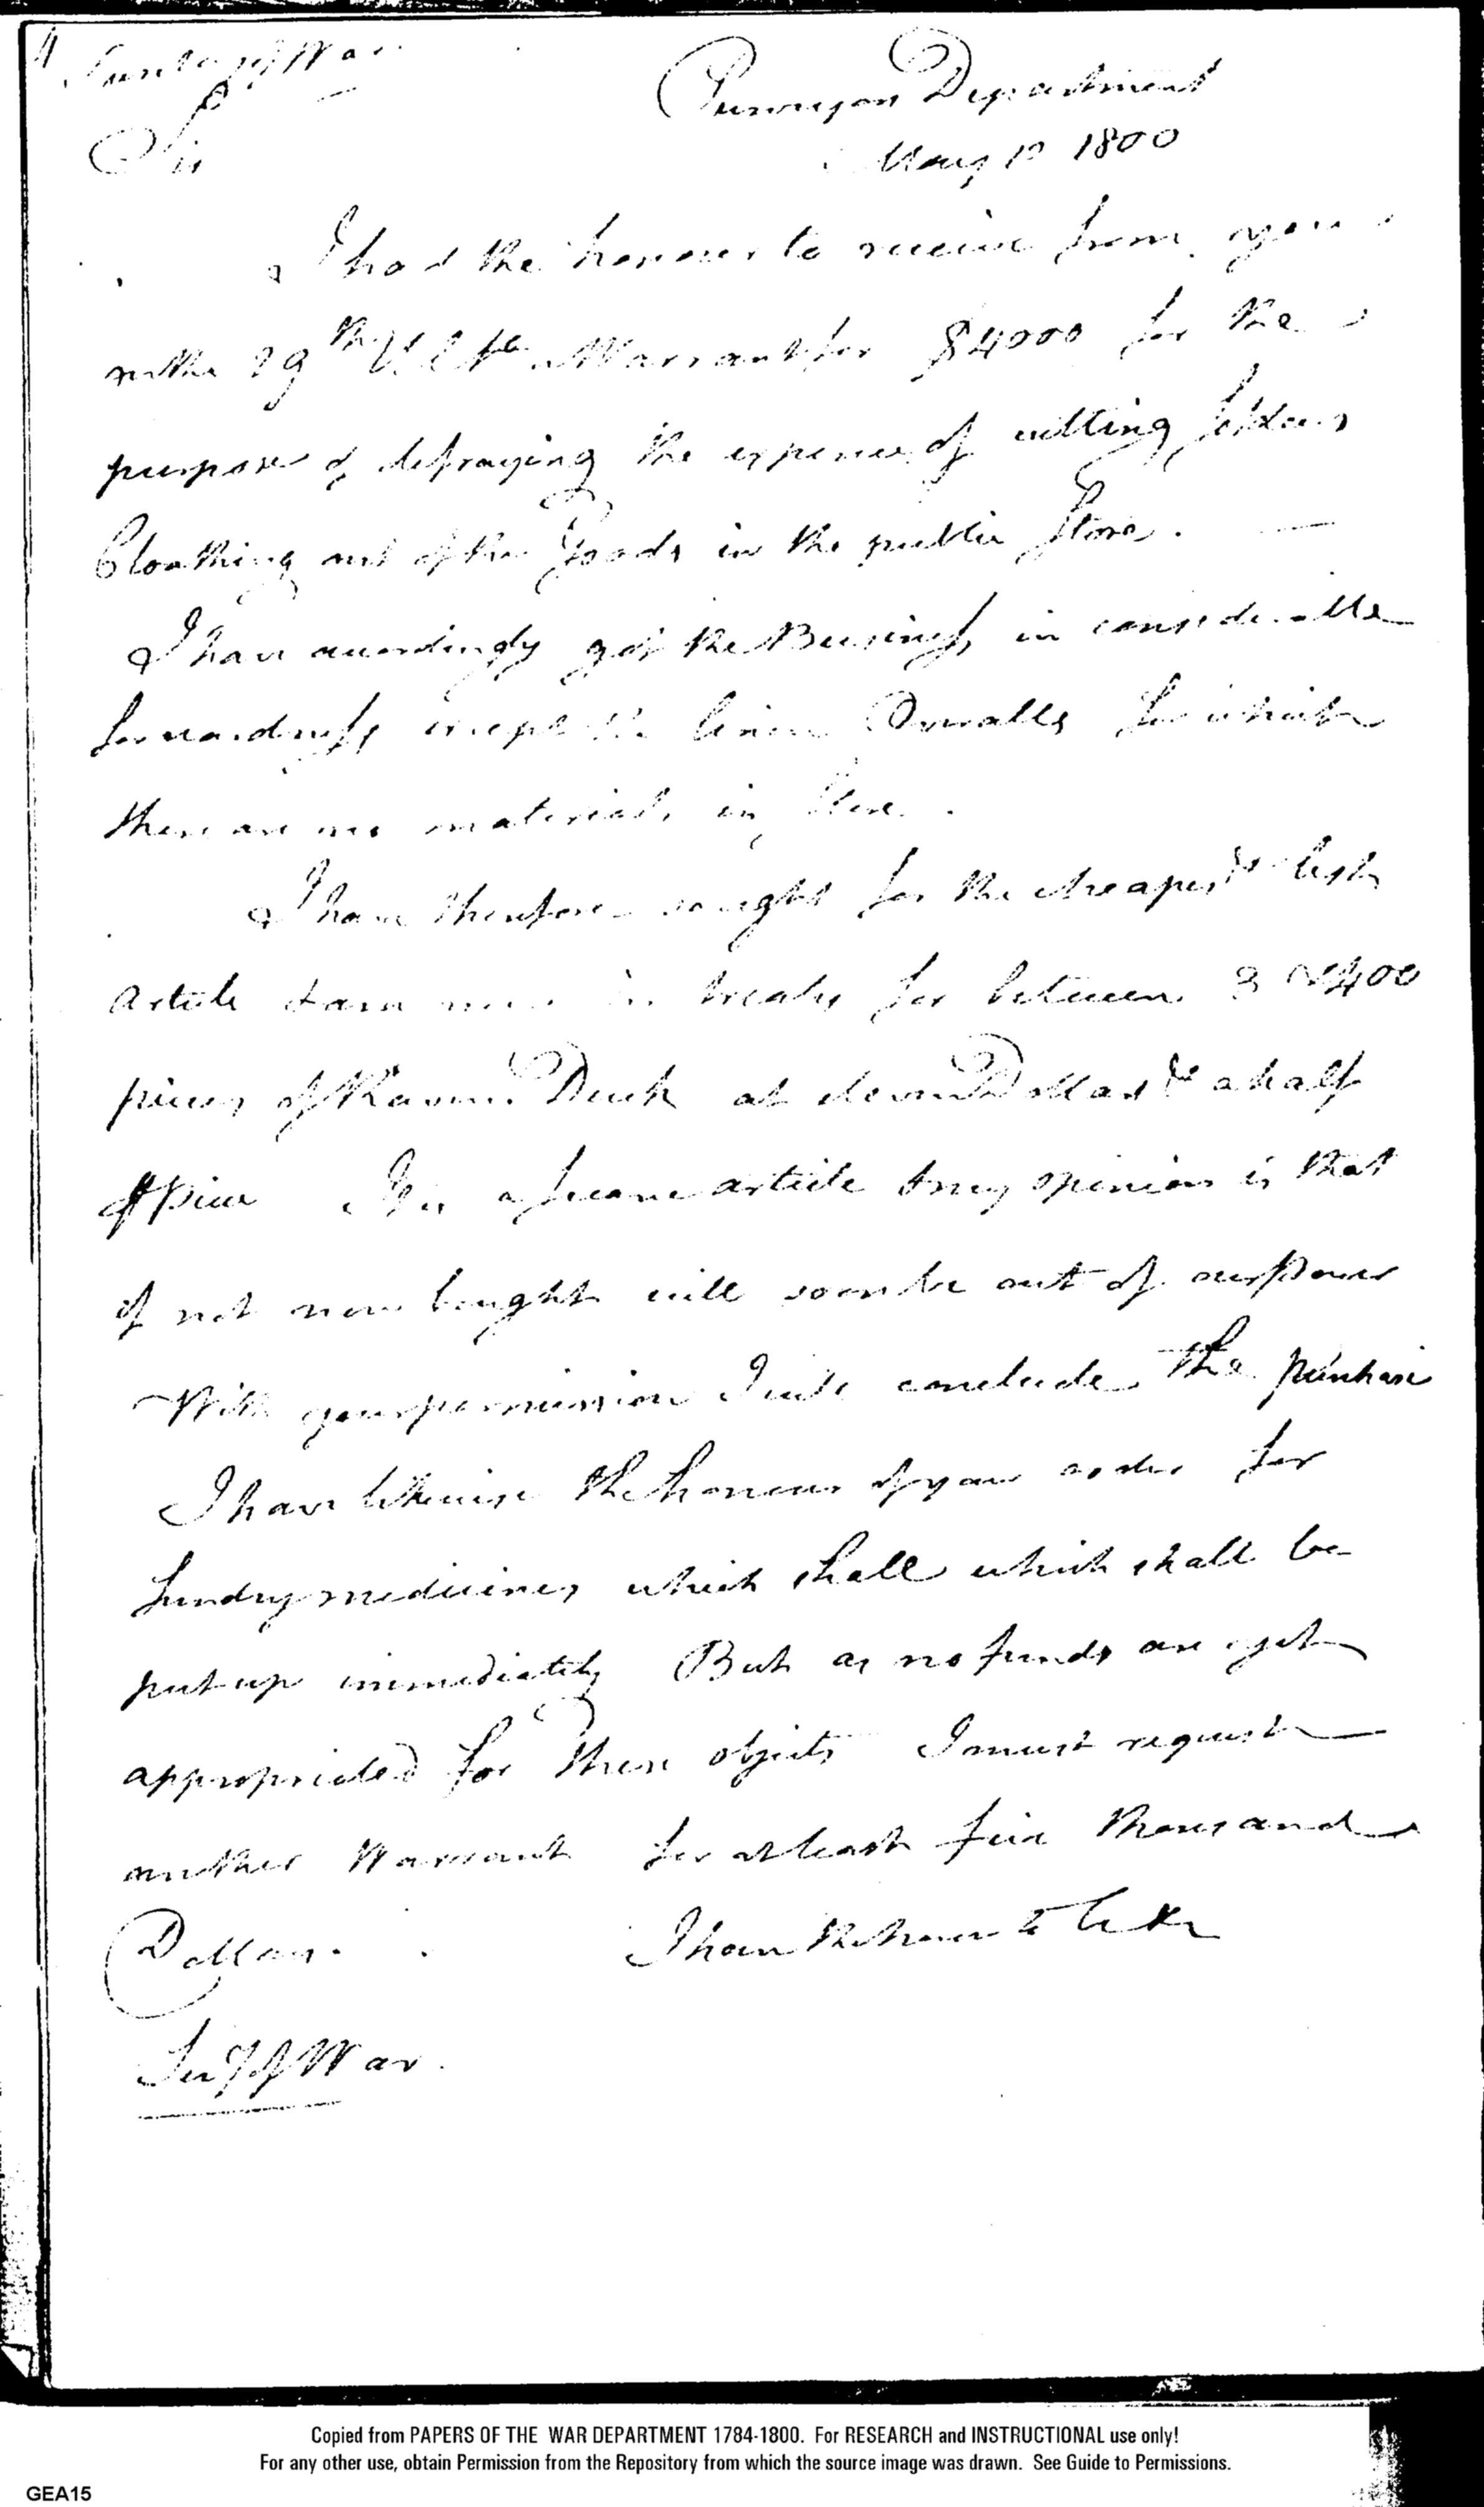 Secretary of War
Purveyors Department
Sir
May 1st 1800
I had the honour to receive from you
on the 29th Ulto. a Warrant for $4000 for the
purpose of defraying the expence of cutting
Cloathing out of the Goods in the public Store.
I have accordingly got the Business in considerable
forwardness except the linen Overalls for which
there are no materials in Store.
I have therefore sought for the cheapest & best
Article & am now in treaty for between 3 & 400
pieces of Ravens Duck at eleven Dollars & a half
pr piece It is a scarce article & my opinion is that
if not now bought will soon be out of our Power
With your permission I will conclude the purchase
I have likewise the honour of your order for
Sundry medicines which shall which shall be
put up immediately But as no funds are yet
appropriated for these objects I must request
another Warrant for at least five thousand
Dollars.
I have the honor to be &c
Secy of War.
Copied from PAPERS OF THE WAR DEPARTMENT 1784-1800. For RESEARCH and INSTRUCTIONAL use only!
For any other use, obtain Permission from the Repository from which the source image was drawn. See Guide to Permissions.
GEA15